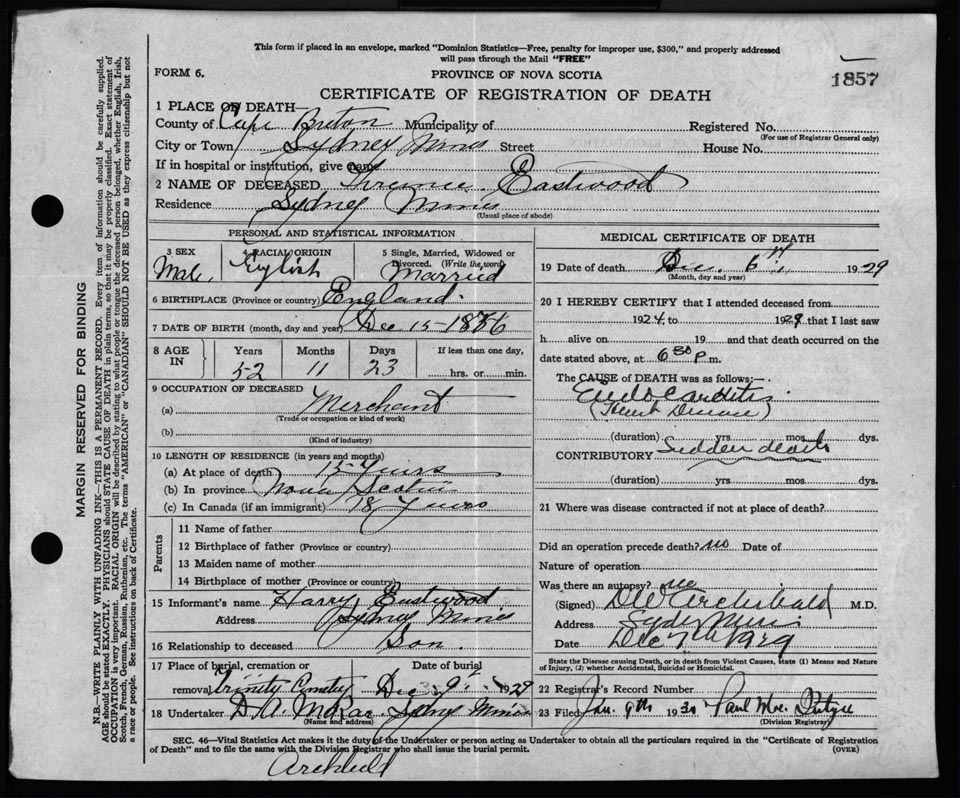 This form if placed in an envelope, marked "Dominion Statistics—Free, penalty for improper use, $300," and properly addressed
will pass through the Mail "FREE"
FORM 6.
PROVINCE OF NOVA SCOTIA
1857
CERTIFICATE OF REGISTRATION OF DEATH
1 PLACE OF DEATH—
County of Cape Breton Municipality of Registered No.
(For use of Registrar General only)
City or Town Sydney Mines Street House No.
If in hospital or institution, give name
2 NAME OF DECEASED Eastwood
Residence Sydney Mines
(Usual place of abode)
PERSONAL AND STATISTICAL INFORMATION
3 SEX Male
4 RACIAL ORIGIN English
5 Single, Married, Widowed or Divorced. (Write the word) Married
6 BIRTHPLACE (Province or country) England
7 DATE OF BIRTH (month, day and year) Dec 15-1876
8 AGE IN Years 52 Months 11 Days 23 If less than one day, hrs. or min.
9 OCCUPATION OF DECEASED
(a) Merchant
(Trade or occupation or kind of work)
(b)
(Kind of industry)
10 LENGTH OF RESIDENCE (in years and months)
(a) At place of death 15 Years
(b) In province Nova Scotia
(c) In Canada (if an immigrant) 18 Years
Parents
11 Name of father
12 Birthplace of father (Province or country)
13 Maiden name of mother
14 Birthplace of mother (Province or country)
15 Informant's name Harry Eastwood
Address Sydney Mines
16 Relationship to deceased Son.
17 Place of burial, cremation or removal Trinity Cemetery
Date of burial Dec 9 1929
18 Undertaker D. A. Sydney Mines
(Name in address)
MEDICAL CERTIFICATE OF DEATH
19 Date of death Dec. 6th 1929
(Month, day and year)
20 I HEREBY CERTIFY that I attended deceased from
1924 to 1929 that I last saw
h alive on 19 and that death occurred on the
date stated above, at 6 30 P.m.
The CAUSE of DEATH was as follows:—
Endocarditis
(Heart Disease)
(duration) yrs mos dys.
CONTRIBUTORY Sudden death
(duration) yrs mos dys.
21 Where was disease contracted if not at place of death?
Did an operation precede death? no Date of
Nature of operation
Was there an autopsy? no
(Signed) D W Archibald M.D.
Address Sydney Mines
Date Dec 7th 1929
State the Disease causing Death, or in death from Violent Causes, state (1) Means and Nature
of Injury, (2) whether Accidental, Suicidal or Homicidal.
22 Registrar's Record Number
23 Filed Jan. 9th 1930 Paul
(Division Registrar)
SEC. 46—Vital Statistics Act makes it the duty of the Undertaker or person acting as Undertaker to obtain all the particulars required in the "Certificate of Registration
of Death" and to file the same with the Division Registrar who shall issue the burial permit.
(OVER)
Archibald
MARGIN RESERVED FOR BINDING
N.B.—WRITE PLAINLY WITH UNFADING INK—THIS IS A PERMANENT RECORD. Every item of information should be carefully supplied.
AGE should be stated EXACTLY. PHYSICIANS should STATE CAUSE OF DEATH in plain terms, so that it may be properly classified. Exact statement of
OCCUPATION is very important. RACIAL ORIGIN will be described by stating to what people or tongue the deceased person belonged, whether English, Irish,
Scotch, French, German, Russian, Ruthenian, etc. The terms "AMERICAN" or "CANADIAN" SHOULD NOT BE USED as they express citizenship but not
a race or people. See instructions on back of Certificate.